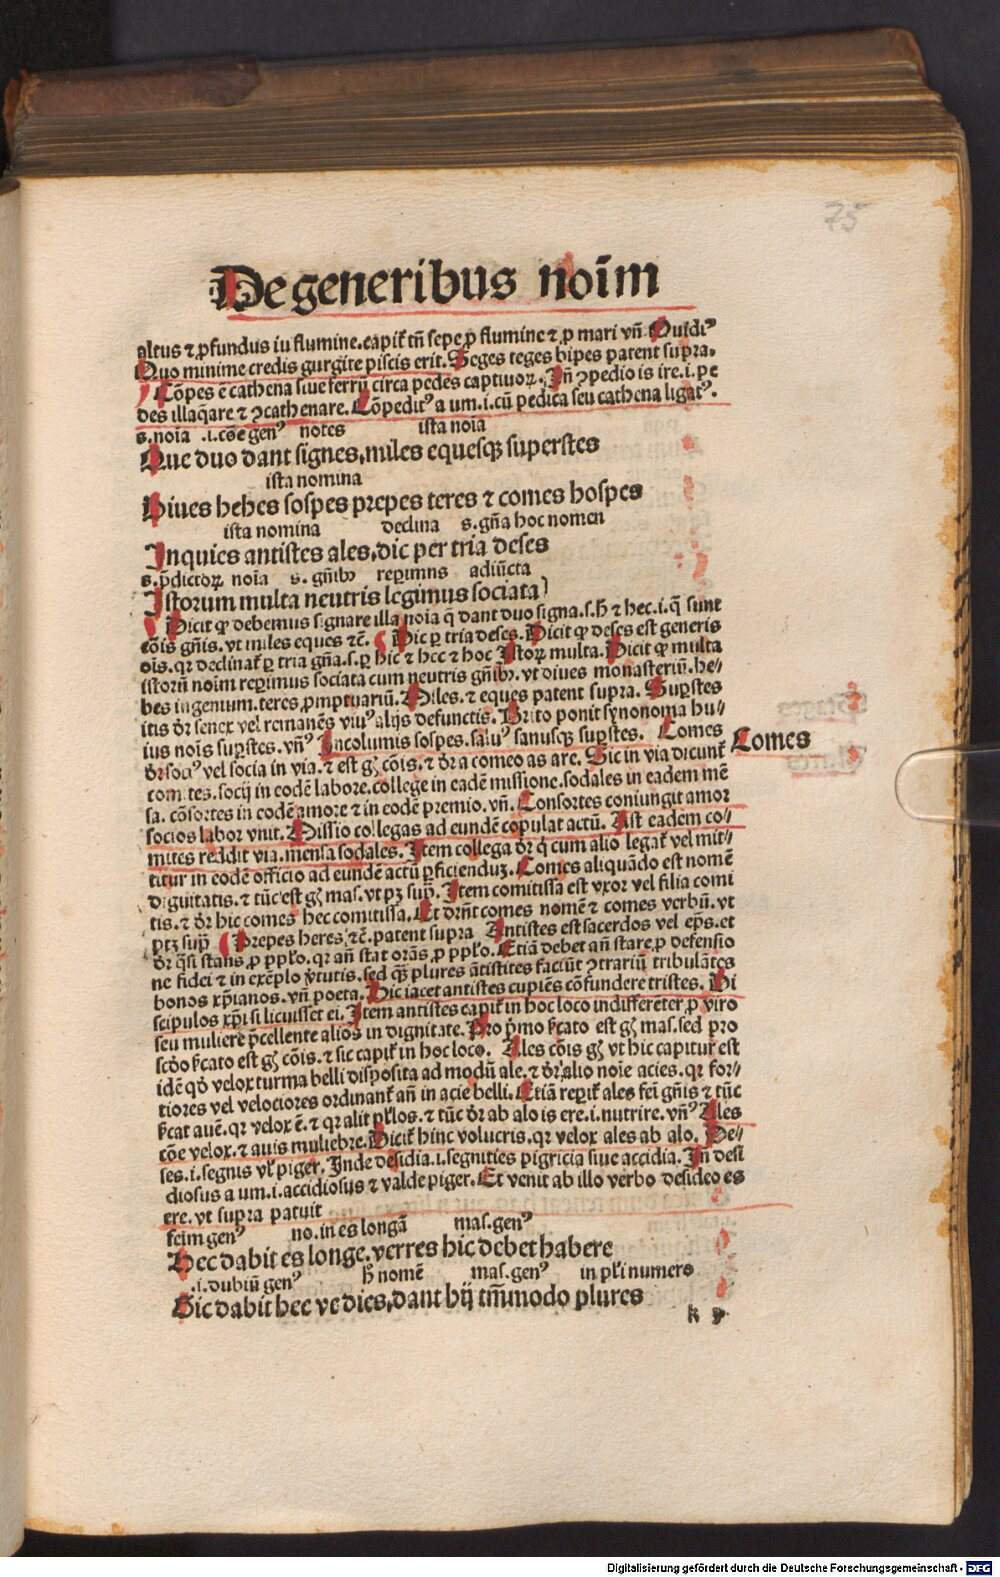 75
De generibus noīm
altus ⁊ ꝓfundus in flumine. capiť tñ sepe ꝓ flumine ⁊ ꝓ mari vñ Ouidiꝰ
Quo minime credis gurgite piscis erit. Seges teges bipes patent supra.
Cōpes ē cathena siue ferrū circa pedes captiuoꝝ. Jñ ꝯpedio is ire .i. pe
des illaq̄are ⁊ ꝯcathenare. Cōpeditꝰ a um .i. cū pedica seu cathena ligatꝰ.
s. noīa .i. cōe genꝰ notes ista noīa
Que duo dant signes, miles equesqꝫ superstes
ista nomina
Diues hebes sospes prepes teres ⁊ comes hospes
ista nomina declina s. gña hoc nomen
Inquies antistes ales, dic per tria deses
s. p̄dictoꝝ noīa s. gñibꝰ reperimus adiūcta
Istorum multa neutris legimus sociata)
Dicit ꝙ debemus signare illa noīa q̄ dant duo signa .s. h̄ ⁊ hec .i. q̄ sunt
cōis gñis. vt miles eques ⁊c̄. Dic ꝑ tria deses. Dicit ꝙ deses est generis
oīs. qꝛ declinať ꝑ tria gña .s. ꝑ hic ⁊ hec ⁊ hoc Istoꝝ multa. Dicit ꝙ multa
istorū noīm reperimus sociata cum neutris gñibꝰ. vt diues monasteriū. he⸗
bes ingenium. teres ꝓmptuariū. Miles. ⁊ eques patent supra. Suꝑstes
itis dr̄ senex vel remanēs viuꝰ alijs defunctis. Brito ponit synonoma hu⸗
ius noīs suꝑstes. vñꝰ Incolumis sospes. saluꝰ sanusqꝫ suꝑstes. Comes
Comes
dr̄ sociꝰ vel socia in via. ⁊ est gꝭ cōis. ⁊ dr̄ a comeo as are. Sic in via dicunť
comites. socij in eodē labore. college in eadē missione. sodales in eadem mē
sa. cōsortes in eodē amore ⁊ in eodē premio. vñ. Consortes coniungit amor
socios labor vnit. Missio collegas ad eundē copulat actū. Ast eadem co⸗
mites reddit via. mensa sodales. Item collega dr̄ q̇ cum alio legať vel mit⸗
titur in eodē officio ad eundē actū ꝑficiendum. Comes aliquādo est nomē
dignitatis. ⁊ tūc est gꝭ mas. vt pꝫ sup̄. Item comitissa est vxor vel filia comi
tis. ⁊ dr̄ hic comes hec comitissa. Et drn̄t comes nomē ⁊ comes verbū. vt
ptꝫ sup̄ Prepes heres ⁊c̄. patent supra Antistes est sacerdos vel ep̄s. et
dr̄ q̄si stans ꝓ pplo. qꝛ añ stat orās ꝓ pplo. Etiā debet añ stare ꝓ defensio
ne fidei ⁊ in exēplo v̄tutis. sed qꝫ plures ātistites faciūt ꝯtrariū tribulātes
bonos xp̄ianos. vñ poeta. Hic iacet antistes cupiēs cōfundere tristes. Di
scipulos xp̄i si licuisset ei. Item antistes capiť in hoc loco indifferēter ꝓ viro
seu muliere p̄cellente alios in dignitate. Pro p̄mo ficato est gꝭ mas. sed pro
scd̄o ficato est gꝭ cōis. ⁊ sic capiť in hoc loco. Ales cōis gꝭ vt hic capitur est
idē qd̄ velox turma belli disposita ad modū ale. ⁊ dr̄ alio noīe acies. qꝛ for⸗
tiores vel velociores ordinanť añ in acie belli. Etiā reperiť ales fei gñis ⁊ tūc
ficat auē. qꝛ velox ē. ⁊ qꝛ alit pullos. ⁊ tūc dr̄ ab alo is ere .i. nutrire. vñꝰ Ales
cōe velox. ⁊ auis muliebre. Diciť hinc volucris. qꝛ velox ales ab alo. De⸗
ses .i. segnis vl̓ piger. Inde desidia .i. segnities pigricia siue accidia. Iñ desi
diosus a um .i. accidiosus ⁊ valde piger. Et venit ab illo verbo desideo es
ere. vt supra patuit
feim genꝰ no. in es longā mas. genꝰ
Hec dabit es longe. verres hic debet habere
.i. dubiū genꝰ h̄ nomē mas. genꝰ in plī numero
Sic dabit hec ve dies, dant hij tm̄modo plures
Digitalisierung gefördert durch die Deutsche Forschungsgemeinschaft - DFG